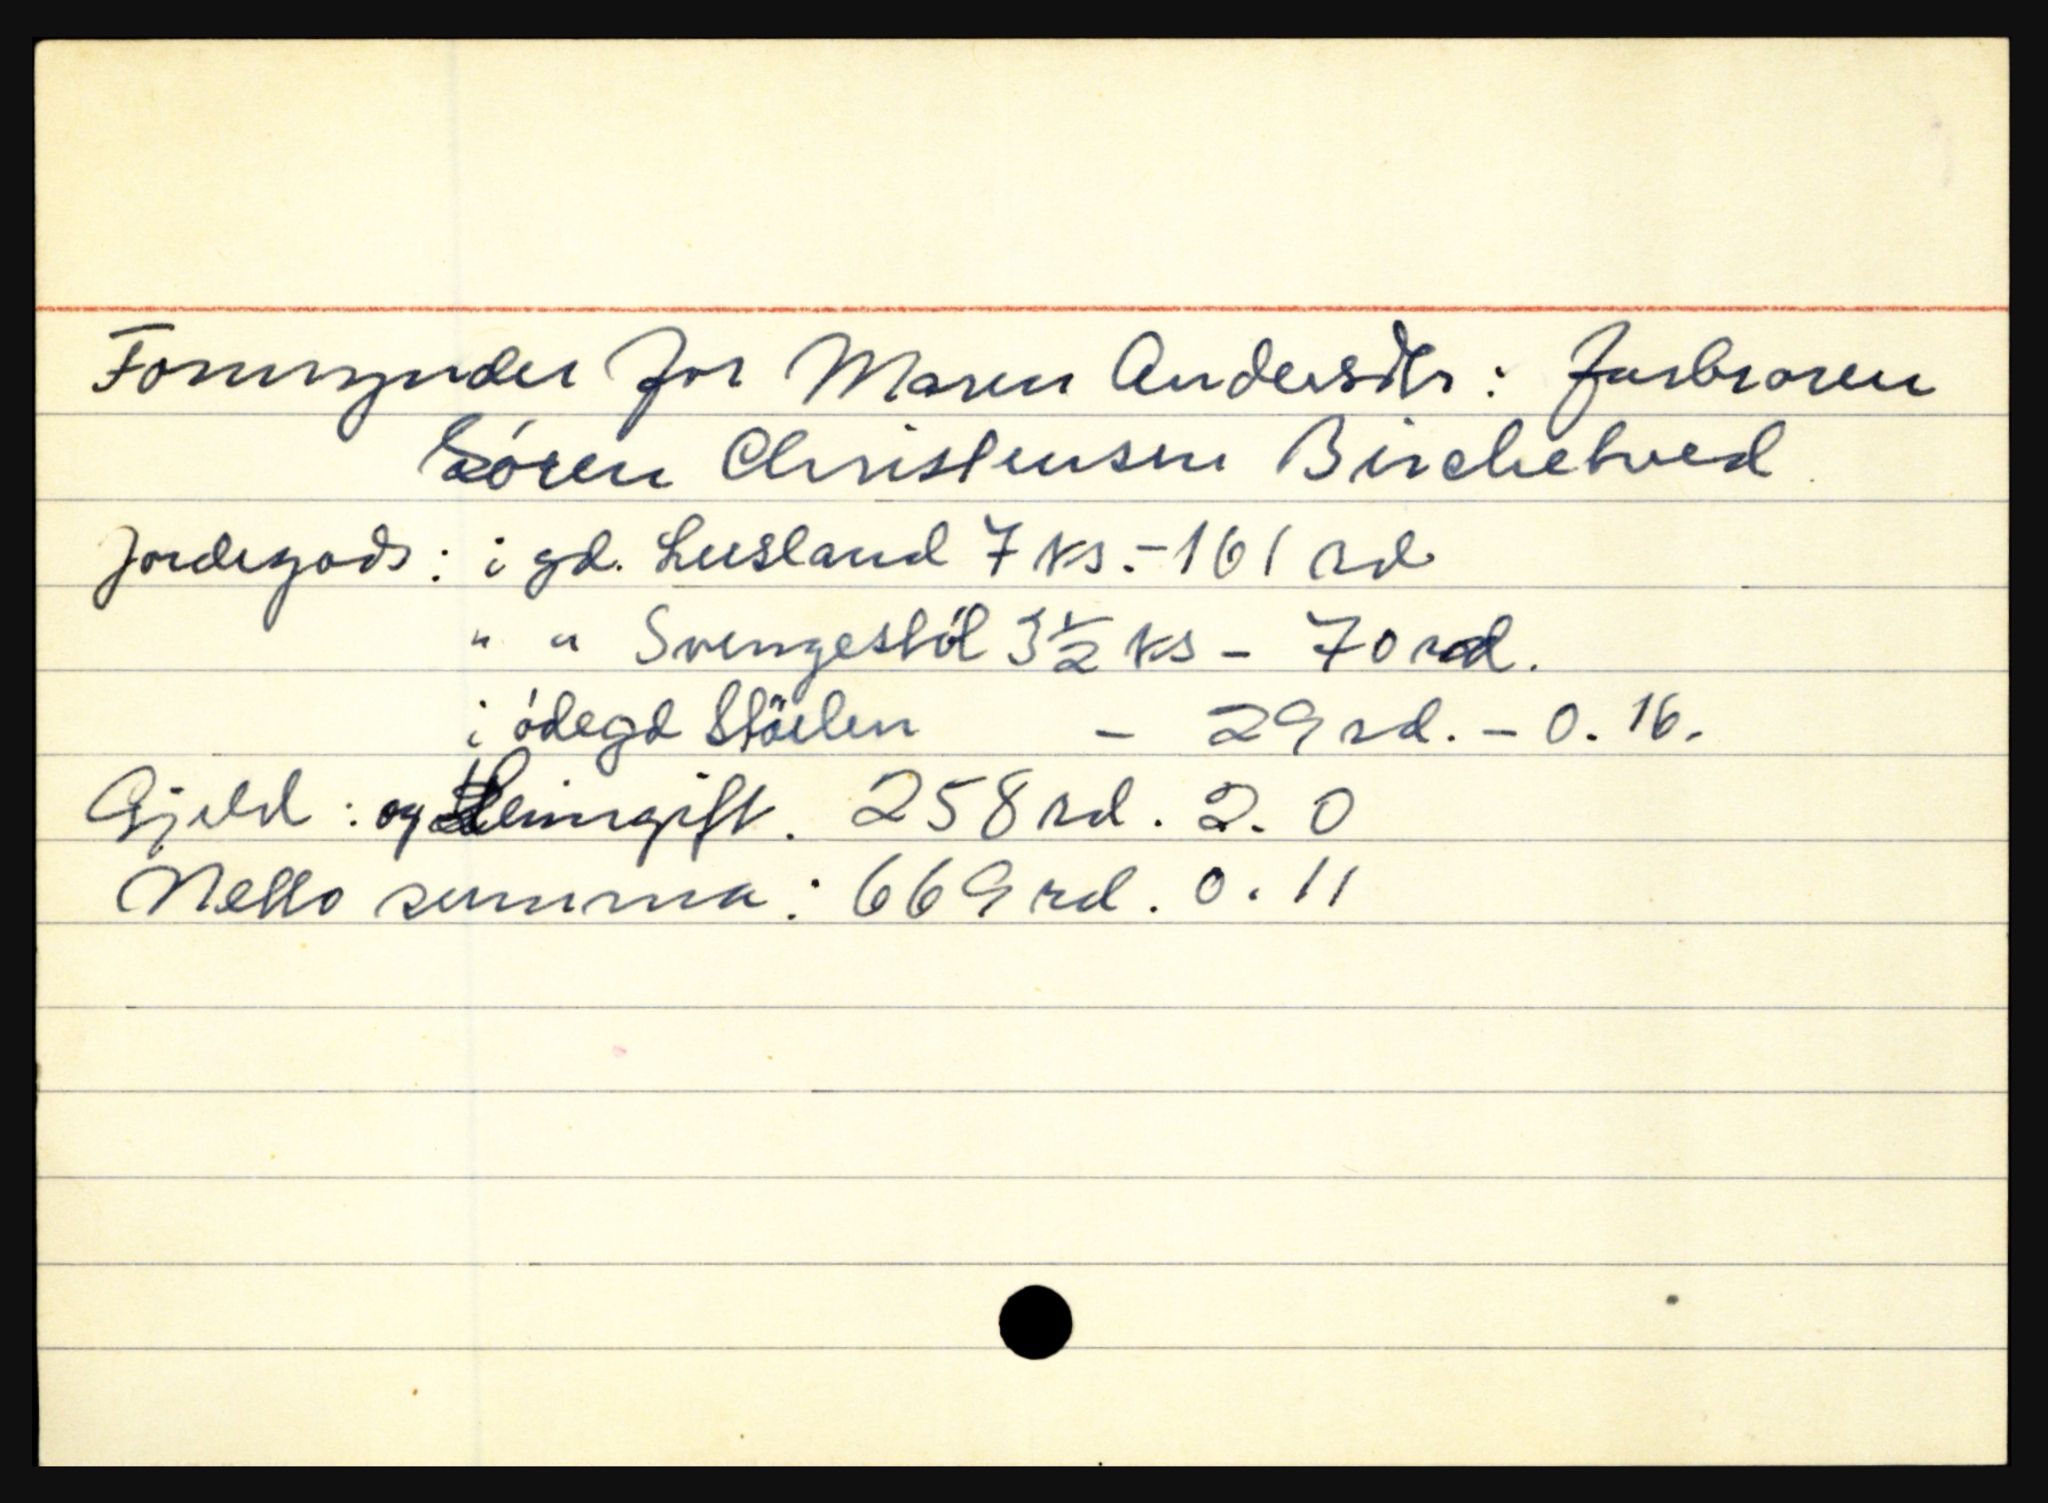 Formynder for Maren Andersdtr: farbroren
Sören Christensen Birchetved
Jordegods: i gd. Lusland 7 ks. - 161 rd
" " Svengestöl 3 1/2 ks - 70 rd.
i ödegd Stöelen - 29 rd. - 0. 16.
Gjeld: og Heimgift. 258 rd. 2. 0
Netto summa: 669 rd. 0. 11